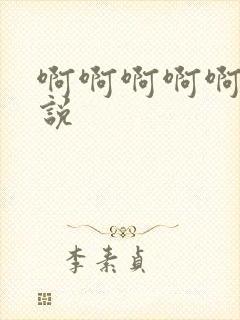 啊啊啊啊啊
說
李素貞